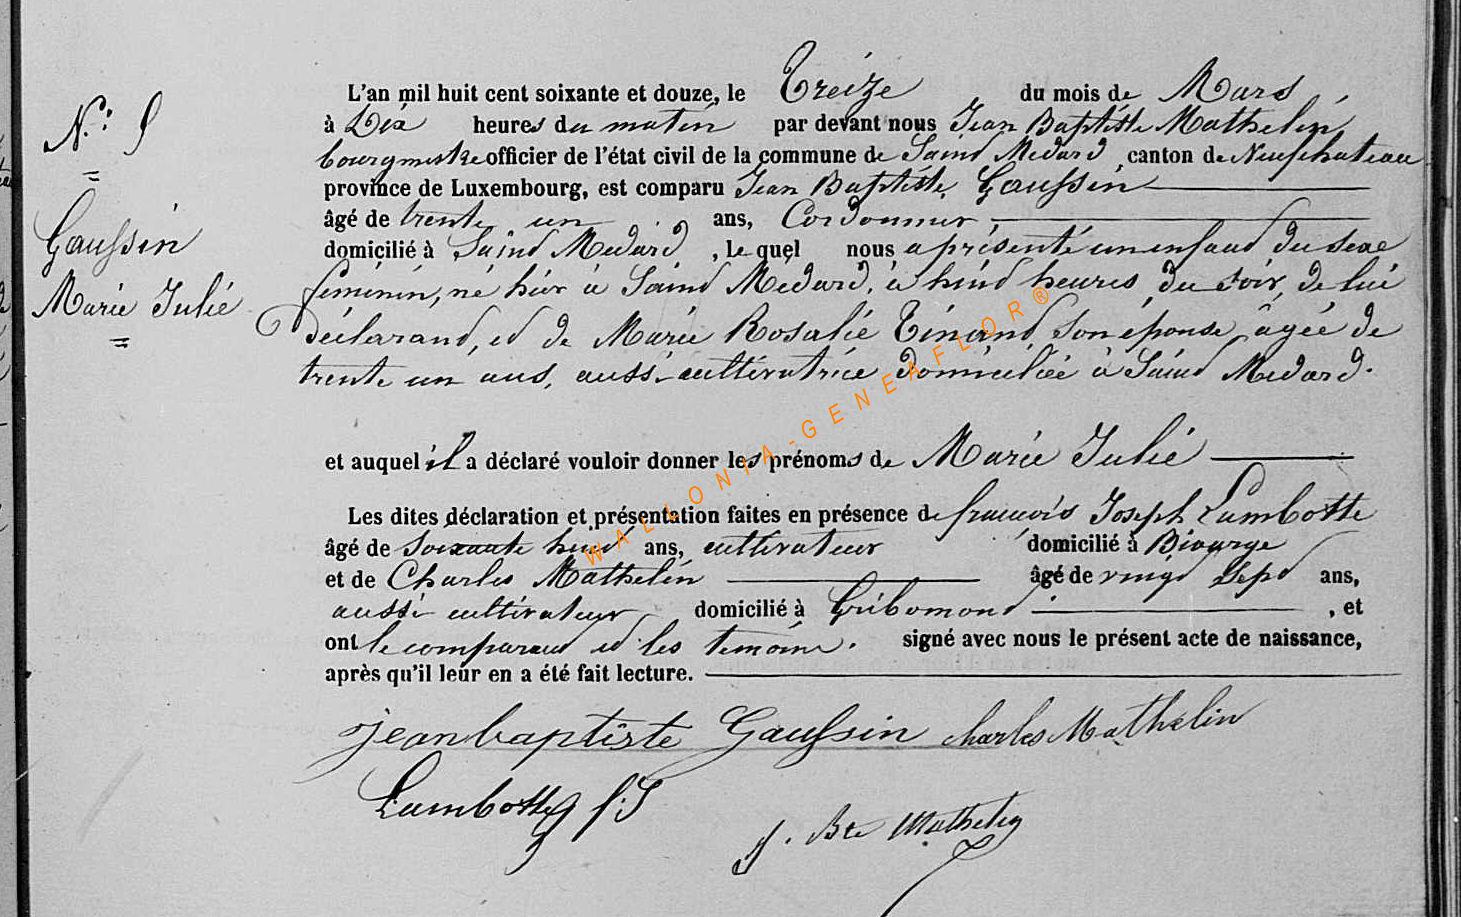 N.° 5
=
Gaussin
Marie Julie
=
L'an mil huit cent soixante et douze, le Treize du mois de Mars
à Dix heures du matin par devant nous Jean Baptiste Mathelin
bourgmestre officier de l'état civil de la commune de Saint Médard canton de Neufchateau
province de Luxembourg, est comparu Jean Baptiste Gaussin
âgé de trente un ans, Cordonnier,
domicilié à Saint Médard, lequel nous a présenté un enfant du sexe
féminin, né hier à Saint Médard, à huit heures du soir, de lui
déclarant, et de Marie Rosalie Tinant, son épouse, âgée de
trente un ans, aussi cultivatrice domiciliée à Saint Médard.
et auquel il a déclaré vouloir donner les prénoms de Marie Julie
Les dites déclaration et présentation faites en présence de françois Joseph Lambotte
âgé de soixante huit ans, cultivateur domicilié à Biourge
et de Charles Mathelin âgé de vingt sept ans,
aussi cultivateur domicilié à Gribomont, et
ont le comparant et les témoins. signé avec nous le présent acte de naissance,
après qu'il leur en a été fait lecture.
jeanbaptiste Gaussin charles Mathelin
Lambotte f. J
J. Bte Mathelin
WALLONIA-GENEAFLOR®